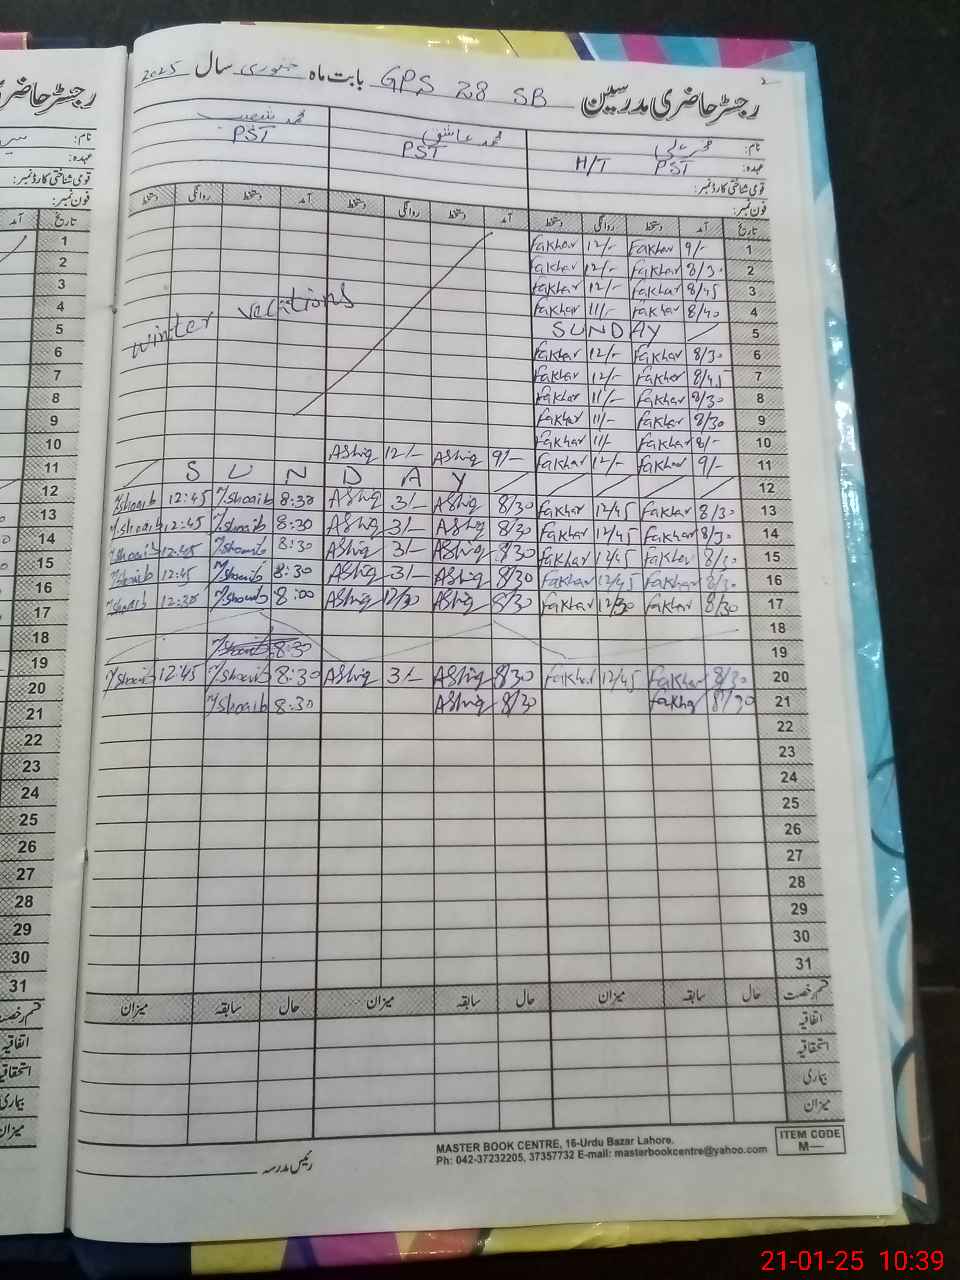 رجسٹر حاضری مدرسین GPS 28 SB بابت ماہ جنوری سال 2025
نام: محمد عاشق محمد شعیب
عہدہ: PST H/T PST PST
قومی شناختی کارڈ نمبر:
فون نمبر:
تاریخ آمد دستخط روانگی دستخط آمد دستخط روانگی دستخط آمد دستخط روانگی دستخط
1 9/- Fakhar 12/- Fakhar
2 8/30 Fakhar 12/- Fakhar
3 8/45 Fakhar 12/- Fakhar
4 8/40 Fakhar 11/- Fakhar
winter vecations
5 SUNDAY
6 8/30 Fakhar 12/- Fakhar
7 8/45 Fakhar 12/- Fakhar
8 8/30 Fakhar 11/- Fakhar
9 8/30 Fakhar 11/- Fakhar
10 8/- Fakhar 11/- Fakhar
11 9/- Fakhar 12/- Fakhar 9/- Ashiq 12/- Ashiq
12 S U N D A Y
13 8/30 Fakhar 12/45 Fakhar 8/30 Ashiq 3/- Ashiq 8:30 M.Shoaib 12:45 M.Shoaib
14 8/30 Fakhar 12/45 Fakhar 8/30 Ashiq 3/- Ashiq 8:30 M.Shoaib 12:45 M.Shoaib
15 8/30 Fakhar 12/45 Fakhar 8/30 Ashiq 3/- Ashiq 8:30 M.Shoaib 12:45 M.Shoaib
16 8/30 Fakhar 12/45 Fakhar 8/30 Ashiq 3/- Ashiq 8:30 M.Shoaib 12:45 M.Shoaib
17 8/30 Fakhar 12/30 Fakhar 8/30 Ashiq 12/30 Ashiq 8:00 M.Shoaib 12:30 M.Shoaib
18
19 8:30 M.Shoaib
20 8/30 Fakhar 12/45 Fakhar 8/30 Ashiq 3/- Ashiq 8:30 M.Shoaib 12:45 M.Shoaib
21 8/30 Fakhar 8/30 Ashiq 8:30 M.Shoaib
22
23
24
25
26
27
28
29
30
31
قسم رخصت حال سابقہ میزان حال سابقہ میزان حال سابقہ میزان
اتفاقیہ
استحقاقیہ
بیماری
میزان
رئیس مدرسہ
MASTER BOOK CENTRE, 16-Urdu Bazar Lahore.
Ph: 042-37232205, 37357732 E-mail: masterbookcentre@yahoo.com
ITEM CODE
M—
21-01-25 10:39